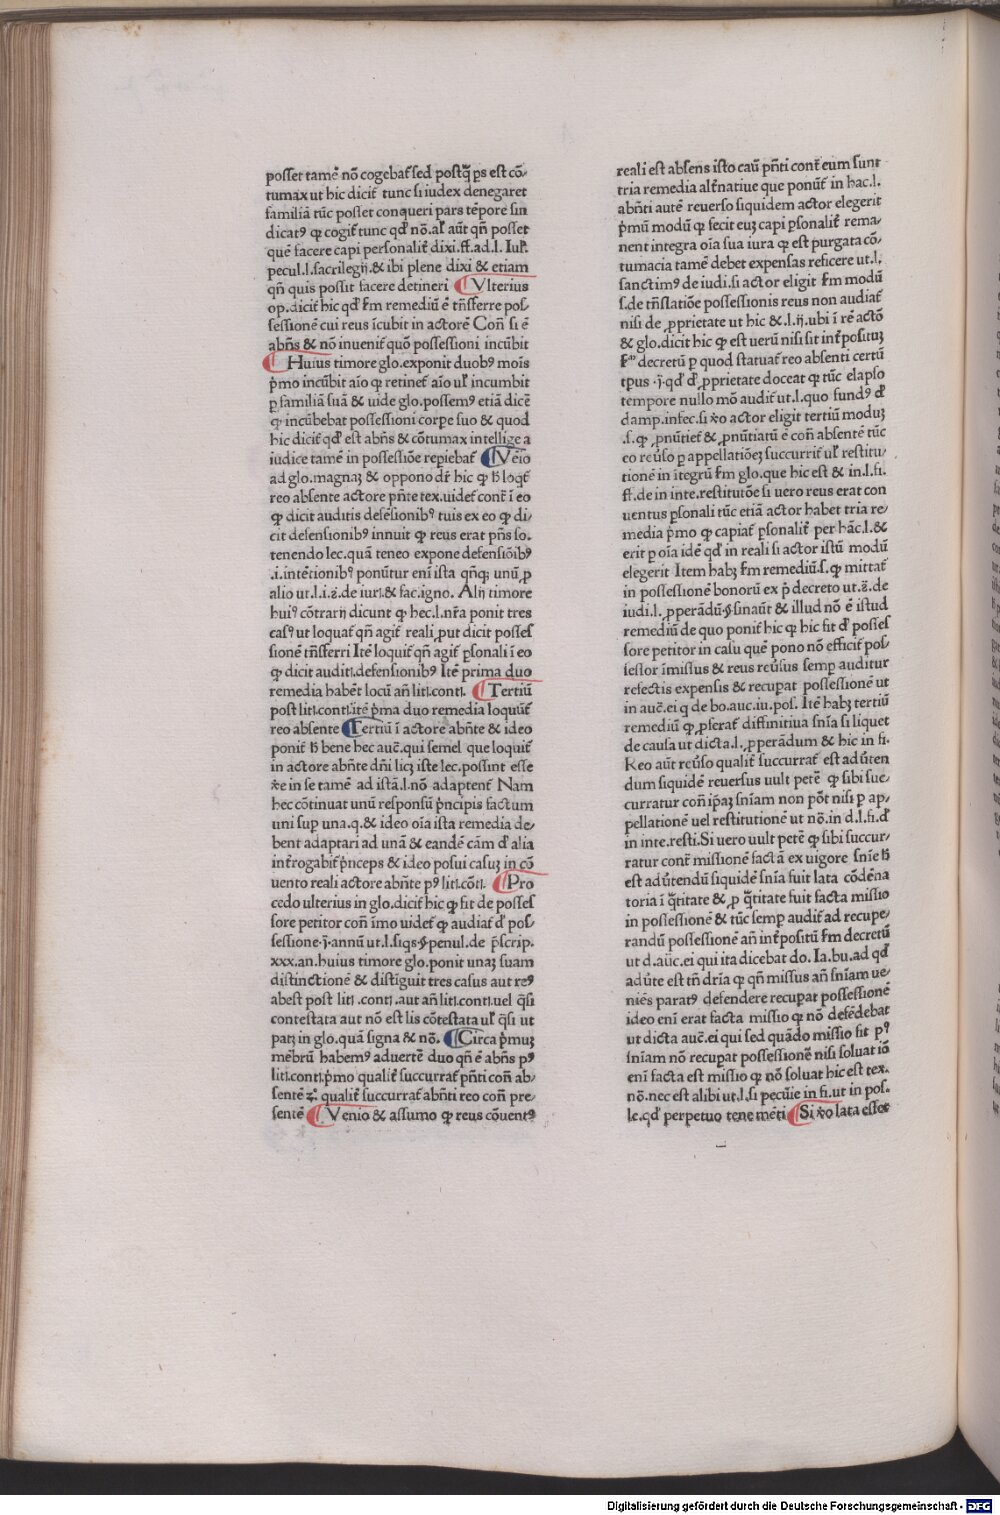 posset tamē nō cogebat᷑ sed postq̄ꝫ p̄s est cō
tumax ut hic dicit᷑ tunc si iudex denegaret
familiā tūc posset conqueri pars tēpore sin
dicatꝰ ꝙ cogit᷑ tunc qd̓ nō.al̓ aūt qn̄ posset
quē facere capi personalit᷑ dixi.ff.ad.l. Iul̓.
pecul.l.sacrilegij.& ibi plene dixi & etiam
qn̄ quis possit facere detineri ¶Vlterius
op.dicit᷑ hic qd̓ s̄m remediū ē tn̄sferre pos
sessionē cui reus īcubit in actorē Con̄ si ē
abn̄s & nō inuenit᷑ quō possessioni incūbit
¶ Huius timore glo.exponit duobꝰ mōis
p̄mo incūbit aīo ꝙ retinet᷑ aīo ul̓ incumbit
ꝑ familiā suā & uide glo.possemꝰ etiā dicē
ꝙ incūbebat possessioni corpe suo & quod
hic dicit᷑ qd̓ est abn̄s & cōtumax intellige a
iudice tamē in possessiōe repiebat᷑ ¶Vēio
ad glo.magnaꝫ & oppono dr̄ hic ꝙ h̄ loqt᷑
reo absente actore pn̄te tex.uidet᷑ cont᷑ ī eo
ꝙ dicit auditis defēsionibꝰ tuis ex eo ꝙ di
cit defensionibꝰ innuit ꝙ reus erat pn̄s so.
tenendo lec.quā teneo expone defensiōibꝰ
.i.intētionibꝰ ponūtur enī ista qn̄qꝫ unū ꝓ
alio ut.l.i.ꝫ̄.de iur.& fac.igno. Alij timore
huiꝰ cōtrarij dicunt ꝙ hec.l.nr̄a ponit tres
casꝰ ut loquat᷑ qn̄ agit᷑ reali ꝓut dicit posses
sionē tn̄sferri Itē loquit᷑ qn̄ agit᷑ ꝑsonali ī eo
ꝙ dicit auditi.defensionibꝰ Itē prima duo
remedia habēt locū an̄ liti.conti. ¶Tertiū
post liti.conti.itē p̄ma duo remedia loquūt᷑
reo absente ¶Tertiū ī actore abn̄te & ideo
ponit᷑ h̄ bene hec auc̄.qui semel que loquit᷑
in actore abn̄te dn̄i licꝫ iste lec.possint esse
v̓e in se tamē ad istā.l.nō adaptent᷑ Nam
hec cōtinuat unū responsū p̄ncipis factum
uni sup una.q.& ideo oīa ista remedia de
bent adaptari ad unā & eandē cām d̓ alia
int̓rogabit᷑ p̄nceps & ideo posui casuꝫ in cō
uento reali actore abn̄te pꝰ liti.cōti. ¶Pro
cedo ulterius in glo.dicit᷑ hic ꝙ fit de posses
sore petitor con̄ īmo uidet᷑ ꝙ audiat᷑ d̓ pos
sessione.j.annū ut.l.siqs.§.penul.de p̄scrip.
xxx.an.huius timore glo.ponit unaꝫ suam
distinctionē & distīguit tres casus aut reꝰ
abest post liti .conti.aut an̄ liti.conti.uel q̄si
contestata aut nō est lis cōtestata ul̓ q̄si ut
patꝫ in glo.quā signa & nō. ¶Circa p̄muꝫ
mēbrū habemꝰ aduertē duo qn̄ ē abn̄s pꝰ
liti.conti.p̄mo qualit᷑ succurrat᷑ pn̄ti con̄ ab
sentē ꝫ̊. qualit᷑ succurrat᷑ abn̄ti reo con̄ pre
sentē ¶ Venio & assumo ꝙ reus cōuentꝰ
reali est absens isto caū pn̄ti cont᷑ eum sunt
tria remedia alt̓natiue que ponūt᷑ in hac.l.
abn̄ti autē reuerso siquidem actor elegerit
p̄mū modū ꝙ fecit euꝫ capi ꝑsonalit᷑ rema
nent integra oīa sua iura ꝙ est purgata cō
tumacia tamē debet expensas reficere ut.l.
sanctimꝰ de iudi.si actor eligit s̄m modū
s.de tn̄slatiōe possessionis reus non audiat᷑
nisi de ꝓprietate ut hic &.l.ij.ubi ī rē actō
& glo.dicit hic ꝙ est uerū nisi sit int̓posituꝫ
sᵐ decretū ꝑ quod statuat᷑ reo absenti certū
tpus .j.qd̓ d̓ ꝓprietate doceat ꝙ tūc elapso
tempore nullo mō audit᷑ ut.l.quo fundꝰ d̓
damp.infec.si v̓o actor eligit tertiū moduꝫ
.s.ꝙ ꝓnūtiet᷑ & ꝓnūtiatū ē con̄ absentē tūc
co reu̓so ꝑ appellatiōeꝫ succurrit᷑ ul̓ restitu
tionē in ītegrū s̄m glo.que hic est & in.l.fi.
ff.de in inte.restitutōe si uero reus erat con
uentus ꝑsonali tūc etiā actor habet tria re
media p̄mo ꝙ capiat᷑ ꝑsonalit᷑ per hāc.l.&
erit ꝑ oīa idē qd̓ in reali si actor istū modū
elegerit Item habꝫ s̄m remediū.s.ꝙ mittat᷑
in possessionē bonorū ex p̄ decreto ut.ꝫ̄.de
iudi.l.ꝓperādū.§.sinaūt & illud nō ē istud
remediū de quo ponit᷑ hic ꝙ hic fit d̓ posses
sore petitor in casu quē pono nō efficit᷑ pos
sessor īmissus & reus reu̓sus semp auditur
refectis expensis & recupat possessionē ut
in auc̄.ei q de bo.auc.iu.pos. Itē habꝫ tertiū
remediū ꝙ ꝓferat᷑ diffinitiua sn̄ia si liquet
de causa ut dicta.l.ꝓperādum & hic in fi.
Reo aūt reu̓so qualit᷑ succurrat᷑ est adu̓ten
dum siquidē reuersus uult petē ꝙ sibi suc
curratur con̄ ip̄aꝫ sn̄iam non pōt nisi ꝑ ap
pellationē uel restitutionē ut nō.in d.l.fi.d̓
in inte.resti.Si uero uult petē ꝙ sibi succur
ratur cont᷑ missionē factā ex uigore sn̄ie h̄
est adu̓tendū siquidē sn̄ia fuit lata cōdēna
toria ī q̄titate & ꝓ q̄titate fuit facta missio
in possessionē & tūc semp audit᷑ ad recupe
randū possessionē an̄ int̓positū s̄m decretū
ut d.aūc.ei qui ita dicebat do. Ia.bu.ad qd̓
adu̓te est tn̄ dr̄ia ꝙ qn̄ missus an̄ sn̄iam ue
niēs paratꝰ defendere recupat possessionē
ideo enī erat facta missio ꝙ nō defēdebat᷑
ut dicta auc̄.ei qui sed quādo missio fit pꝰ
sn̄iam nō recupat possessionē nisi soluat iō
enī facta est missio ꝙ nō soluat hic est tex.
nō.nec est alibi ut.l.si pecūie in fi.ut in pos.
le.qd̓ perpetuo tene mēti ¶Si v̓o lata esset
Digitalisierung gefördert durch die Deutsche Forschungsgemeinschaft - DFG